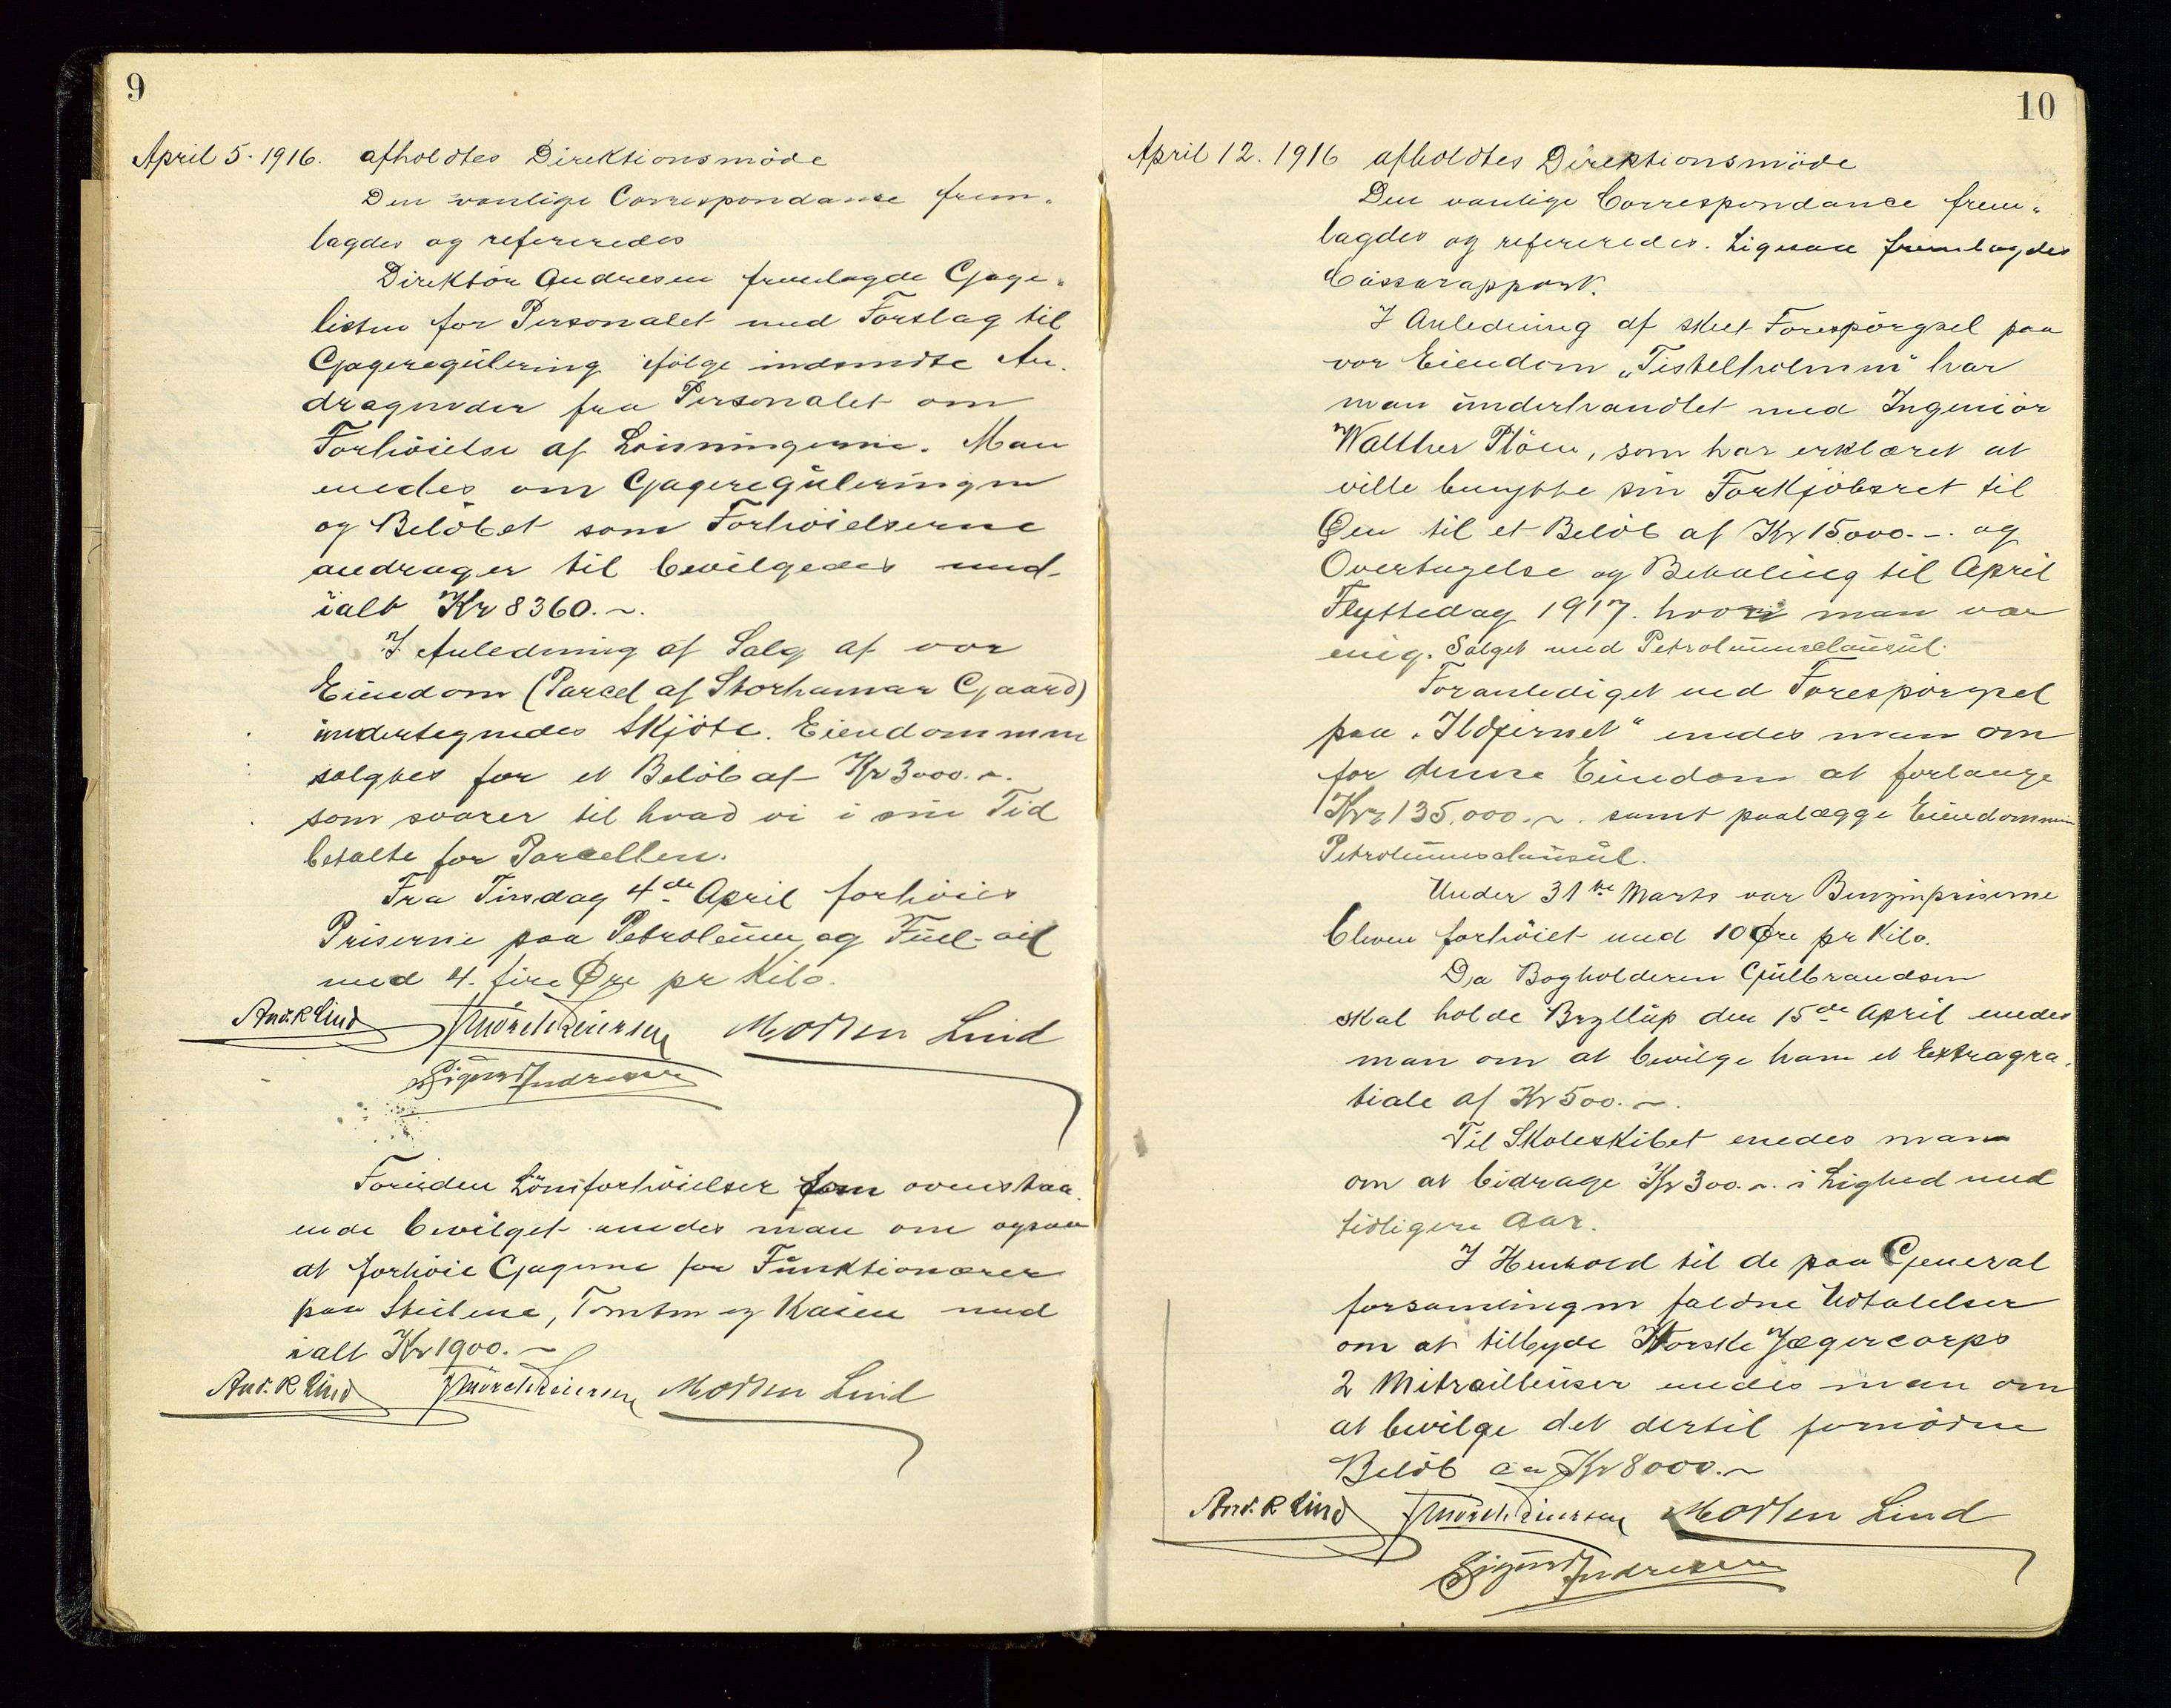 9
April 5. 1916. afholdtes Direktionsmöde
Den vanlige Correspondanse frem-
lagdes og refereredes
Direktör Andresen fremlagde Gage-
listen for Personalet med Forslag til
Gageregulering ifölge indsendte An-
dragender fra Personalet om
Forhöielse af Lönningerne. Man
enedes om Gagereguleringen
og Belöbet som Forhöielserne
andrager til bevilgedes med
ialt Kr 8360.~.
I Anledning af Salg af vor
Eiendom (Parcel af Storhamar Gaard)
undertegnedes Skjöte. Eiendommen
solgtes for et Belöb af Kr 3000.~.
som svarer til hvad vi i sin Tid
betalte for Parcellen.
Fra Tirsdag 4de April forhöies
Priserne paa Petroleum og Fuel-oil
med 4. fire Øre pr Kilo.
Andr. R Lind JMörch Reiersen Morten Lind
Sigurd Andresen
Foruden Lönsforhöielser som ovenstaa-
ende bevilget enedes man om ogsaa
at forhöie Gagerne for Funktionærer
paa Steilene, Tomten og Kaien med
ialt Kr 1900.~
Andr. R Lind JMörch Reiersen Morten Lind
10
April 12. 1916 afholdtes Direktionsmöde
Den vanlige Correspondance frem-
lagdes og refereredes. Ligesaa fremlagdes
Cassarapport.
I Anledning af skeet Forespörgsel paa
vor Eiendom „Tistelholmen" har
man underhandlet med Ingeniör
Walther Plöen, som har erklæret at
ville benytte sin Forkjöbsret til
Øen til et Belöb af Kr 15000.-. og
Overtagelse og Betaling til April
Flyttedag 1917. hvori man var
enig. Salget med Petroleumsclausul.
Foranlediget ved Forespörgsel
paa „Ildjernet" enedes man om
for denne Eiendom at forlange
Kr 135.000.~. samt paalægge Eiendommen
Petroleumsclausul.
Under 31te Marts var Benzinpriserne
bleven forhöiet med 10 Øre pr Kilo.
Da Bogholderen Gulbrandsen
skal holde Bryllup den 15de April enedes
man om at bevilge ham et Extragra-
tiale af Kr 500.~.
Til Skoleskibet enedes man
om at bidrage Kr 300.~. i Lighed med
tidligere Aar.
I Henhold til de paa General
forsamlingen faldne Udtalelser
om at tilbyde Norske Jægercorps
2 Mitrailleuser enedes man om
at bevilge det dertil fornödne
Belöb ca Kr 8000.~
Andr. R Lind JMörch Reiersen Morten Lind
Sigurd Andresen